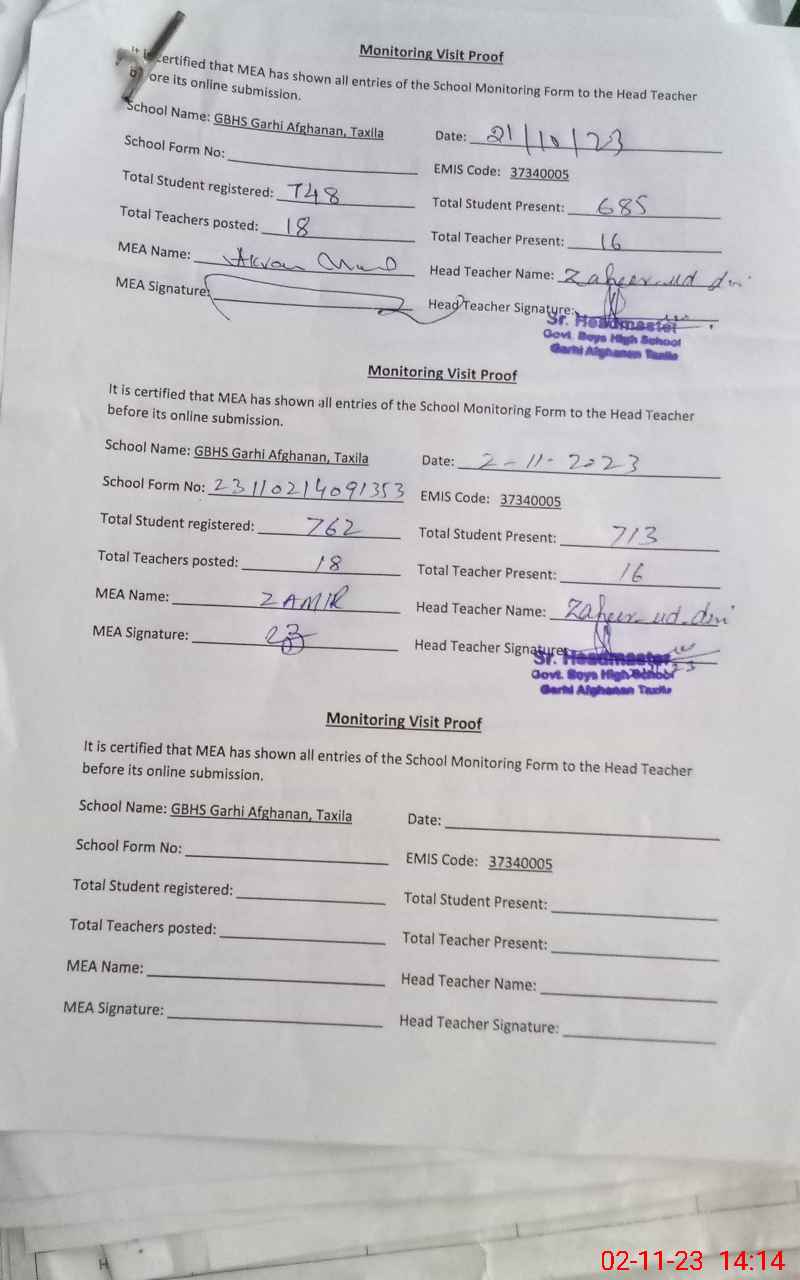 Monitoring Visit Proof
It is certified that MEA has shown all entries of the School Monitoring Form to the Head Teacher
ore its online submission.
School Name: GBHS Garhi Afghanan, Taxila Date: 21/10/23
School Form No: EMIS Code: 37340005
Total Student registered: 748 Total Student Present: 685
Total Teachers posted: 18 Total Teacher Present: 16
MEA Name: Head Teacher Name: Zaheer ud din
MEA Signature: Head Teacher Signature:
Sr. Headmaster
Govt. Boys High School
Garhi Afghanan Taxila
Monitoring Visit Proof
It is certified that MEA has shown all entries of the School Monitoring Form to the Head Teacher
before its online submission.
School Name: GBHS Garhi Afghanan, Taxila Date: 2-11-2023
School Form No: 23110214091353 EMIS Code: 37340005
Total Student registered: 762 Total Student Present: 713
Total Teachers posted: 18 Total Teacher Present: 16
MEA Name: ZAMIR Head Teacher Name: Zaheer ud din
MEA Signature: Head Teacher Signature:
Sr. Headmaster
Govt. Boys High School
Garhi Afghanan Taxila
Monitoring Visit Proof
It is certified that MEA has shown all entries of the School Monitoring Form to the Head Teacher
before its online submission.
School Name: GBHS Garhi Afghanan, Taxila Date:
School Form No: EMIS Code: 37340005
Total Student registered: Total Student Present:
Total Teachers posted: Total Teacher Present:
MEA Name: Head Teacher Name:
MEA Signature: Head Teacher Signature:
H
02-11-23 14:14